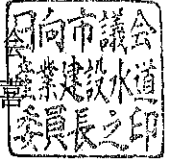 日向市議会
産業建設水道
委員長之印
会
喜